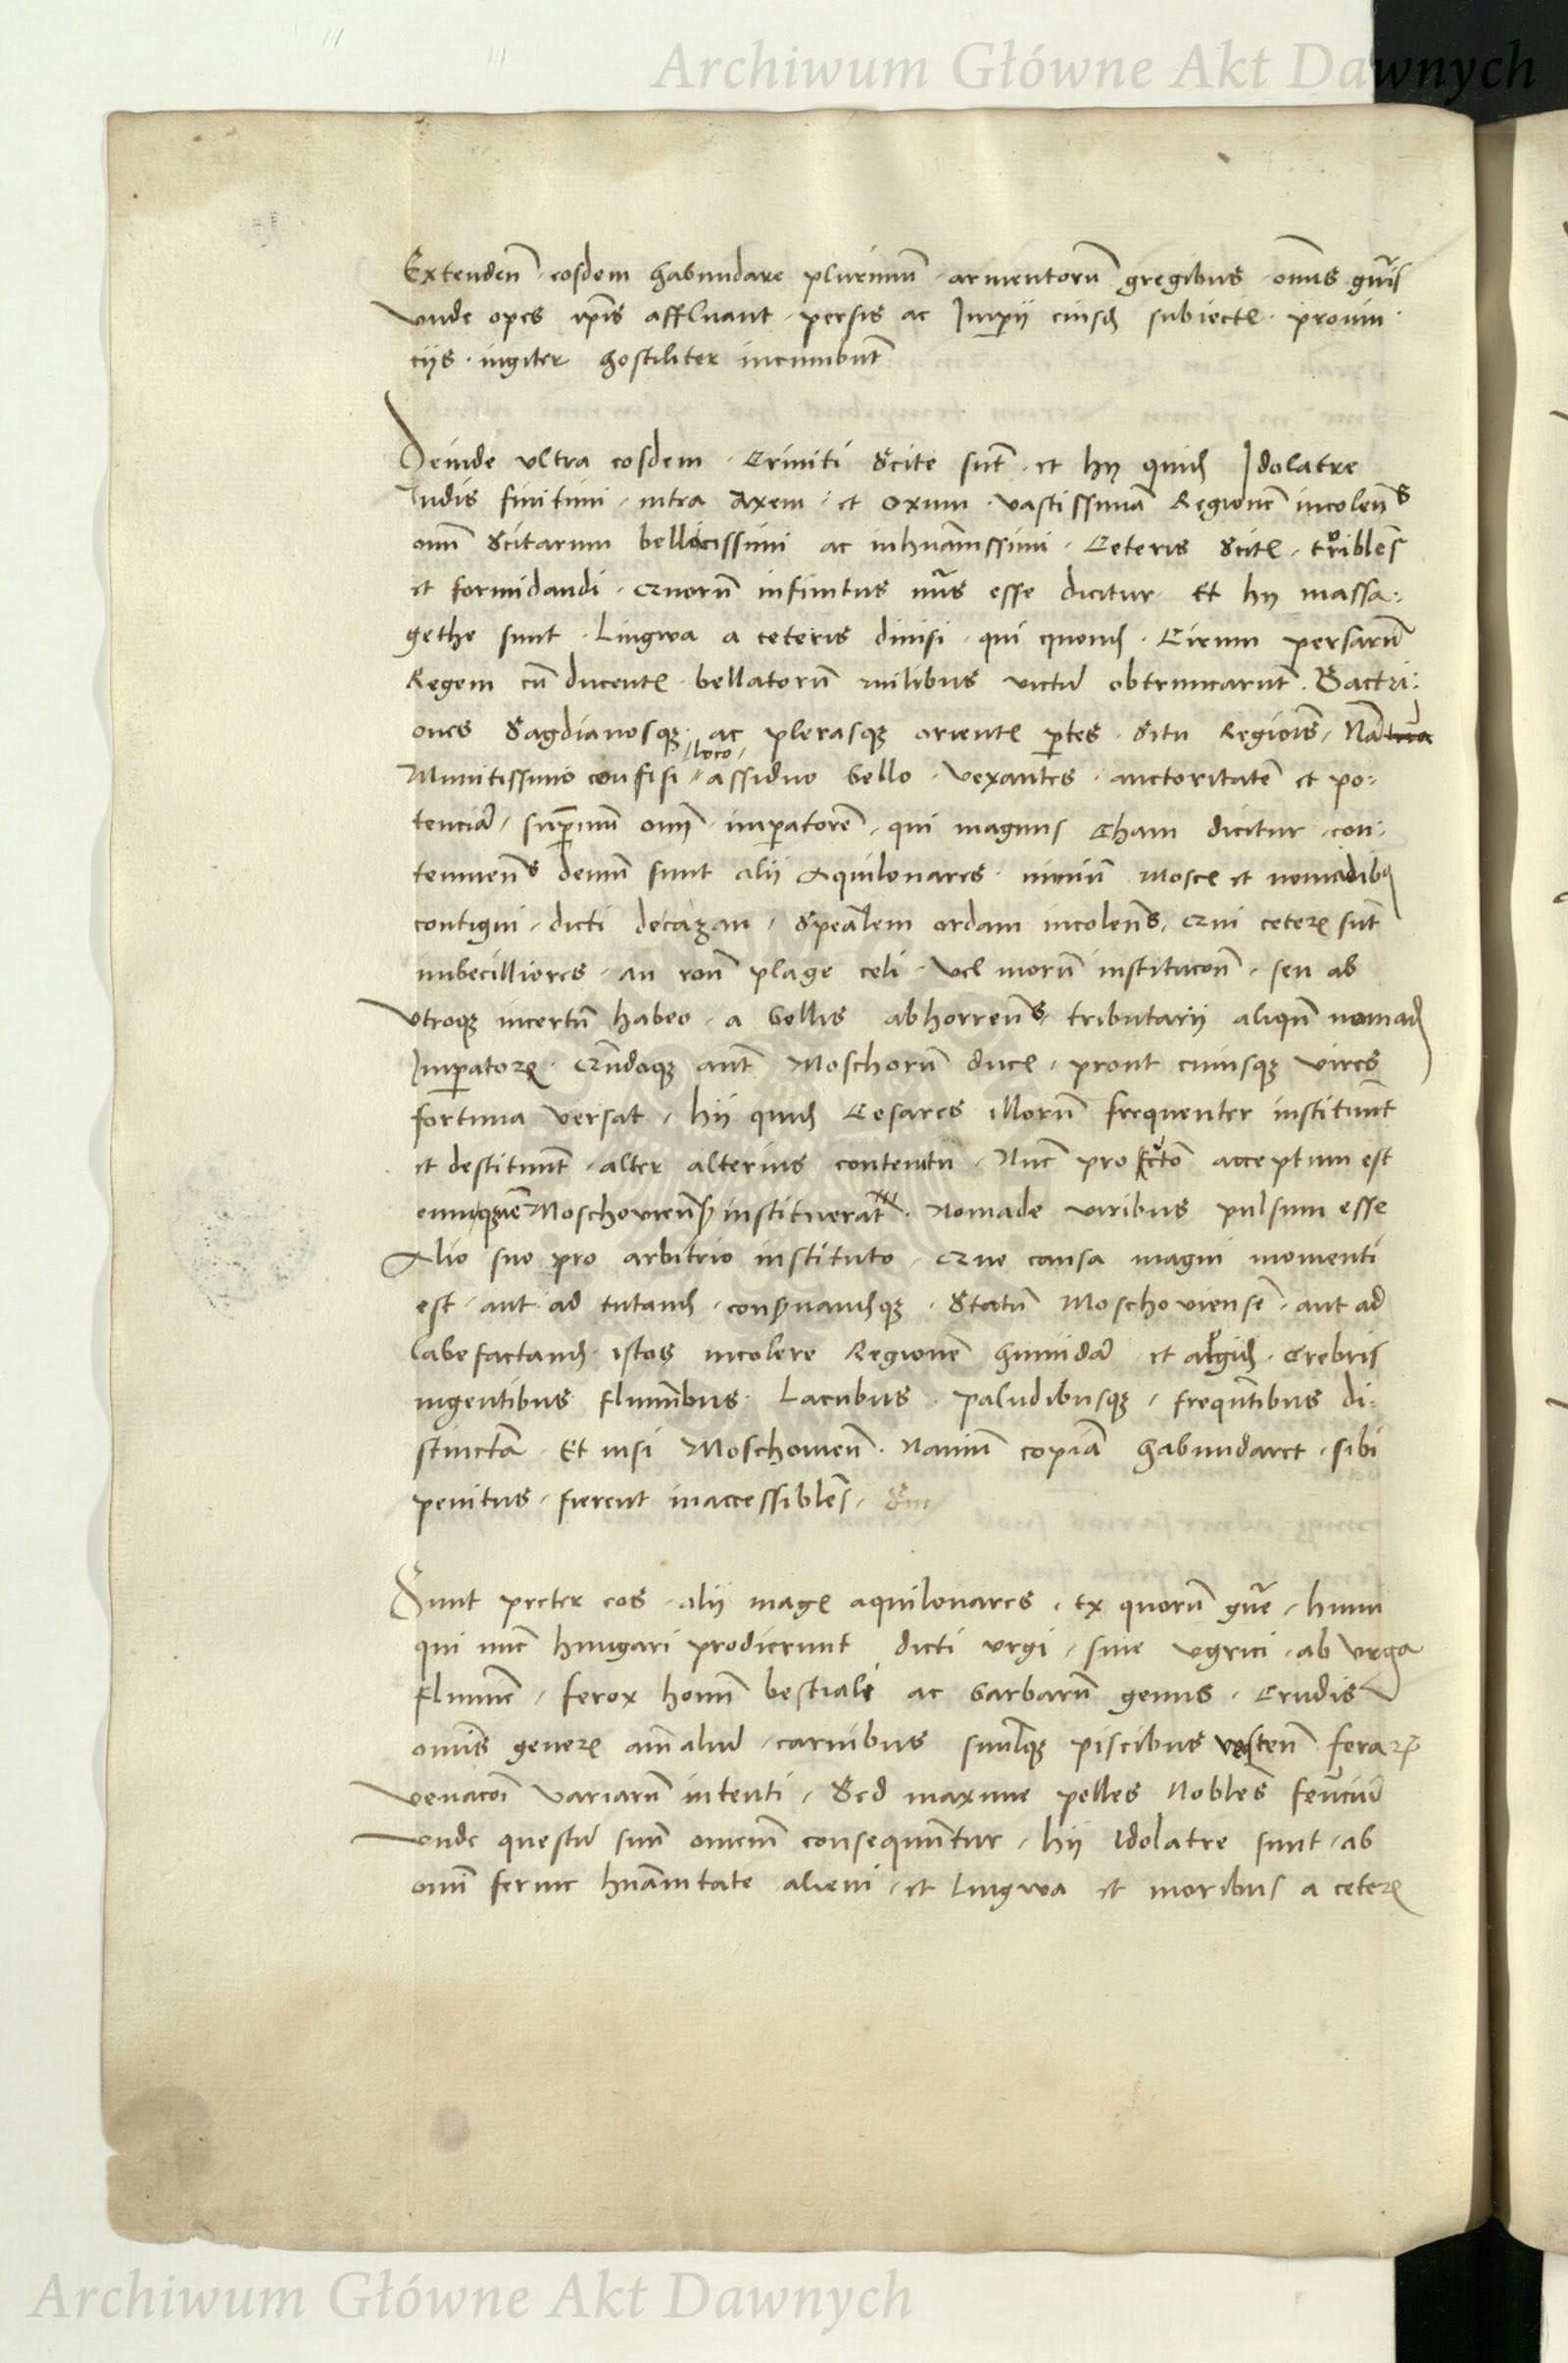 Archiwum Główne Akt Dawnych
Extendeñ · eosdem habundare plurimũ · armentorũ gregibus · omĩs gñis
vnde opes ip̃is affluant · persis ac Imp̃ii eiusđ subiectę · prouin·
ciis · iugiter hostiliter incumbũt
Deinde vltra eosdem · Criniti Scite sũt · et hÿ quiđ Idolatre
Indis finitimi · intra Axem · et Oxum · vastissimã Regionẽ incolẽns
om̃ Scitarum bellicissimi ac inhũanissimi · Ceteris Scitę · terribles
et formidandi · Quorũ infinitus nũs esse dicitur · Et hÿ massa:
gethe sunt · Lingwa a ceteris diuisi · qui quonđ · Cirum persarũ
Regem cũ ducentę · bellatorũ milibus victũ obtruncarũt · Bactri:
ones Sagdianosqȝ · ac plerasqȝ orientę p̃tes · Situ Regiõis · Natura
loco
Munitissimo confisi assiduo bello · vexantes · auctoritatẽ et po:
tenciã · sup̃mũ om̃ · imp̃atorẽ · qui magnus Cham dicitur · con:
temnẽns demũ sunt alii Aquilonares · nimiũ Moscę et nomadibꝫ
contigui · dicti decazan · Spealem ordam incolẽns · Qui ceterꝭ sũt
imbecilliores · an rõne plage celi · vel morũ institucõne · seu ab
vtroqȝ incertũ habeo · a bellis abhorrẽns · tributarii aliqñ nomađ
Imp̃atorꝭ · Quñdoqȝ aut̃ Moschorũ ducę · prout cuiusqȝ vires
fortuna versat · hii quiđ Cesares illorũ frequenter instituũt
et destituũt · alter alterius contentũ · Nũc pro certo acceptum est
eum quẽ Moschouiẽns instituerat · Nomade viribus pulsum esse
Alio suo pro arbitrio instituto · Que causa magni momenti
est · aut ad tutanđ · consẽruanđqȝ · Statũ Moschouiensẽ · aut ad
labefactanđ · istos incolere Regionẽ humidã · et algiđ · Crebris
ingentibus flum̃ibus · Lacubus · paludibusqȝ · frequẽtibus di:
stinctã · Et nisi Moschouiẽn · Nauiũ copiã habundaret · sibi
penitus · fierent inaccessibles ·
Sunt preter eos · alii magę aquilonares · ex quorũ gñe · hunni
qui nũc hungari prodierunt dicti vrgi · siue vgrici · ab vrga
flumĩe · ferox homĩ bestiale ac barbarũ genus · Crudis
omĩs generꝭ aĩaliũ · carnibus simulqȝ piscibus vesceñ ferarꝭ
venacõi variarũ intenti · Sed maxime pelles nobles
vnde questũ suũ om̃em consequũtur · hii Idolatre sunt · ab
om̃i ferme hũanitate alieni · et lingwa et moribus a ceterꝭ
Archiwum Główne Akt Dawnych